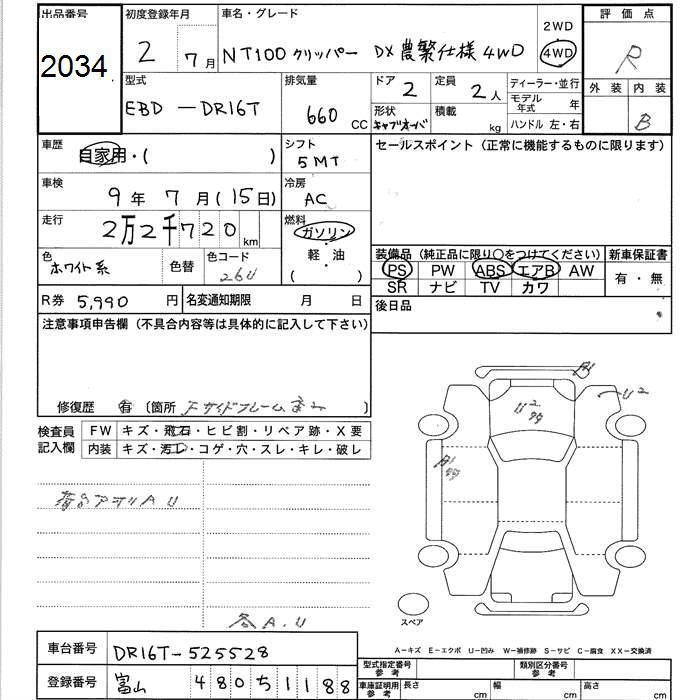 出品番号
2034
初度登録年月
2 7月
車名・グレード
NT100 クリッパー DX 農繁仕様 4WD
2WD
4WD
評価点
R
外装 内装
B
型式
EBD-DR16T
排気量
660 CC
ドア
2
定員
2人
形状
キャブオーバ
積載
kg
ディーラー・並行
モデル年式 年
ハンドル 左・右
車歴
自家用・( )
シフト
5MT
セールスポイント（正常に機能するものに限ります）
車検
9年 7月(15日)
冷房
AC
走行
2万2千720 km
燃料
ガソリン
軽・油
( )
色
ホワイト系
色替
色コード
26U
装備品（純正品に限り○をつけてください）
新車保証書
PS PW ABS エアB AW
SR ナビ TV カワ
有・無
R券 5,990 円
名変通知期限 月 日
後日品
注意事項申告欄（不具合内容等は具体的に記入して下さい）
修復歴 有 〔箇所 〕
検査員記入欄
FW キズ・飛石・ヒビ割・リペア跡・X要
内装 キズ・汚レ・コゲ・穴・スレ・キレ・破レ
荷台アオリ A U
各A.U
U2
U2
スペア
A－キズ E－エクボ U－凹み W－補修跡 S－サビ C－腐食 XX－交換済
車台番号
DR16T-525528
登録番号
富山 480 5 1188
型式指定番号 参考
類別区分番号 参考
車庫証明用 参考
長さ cm
幅 cm
高さ cm